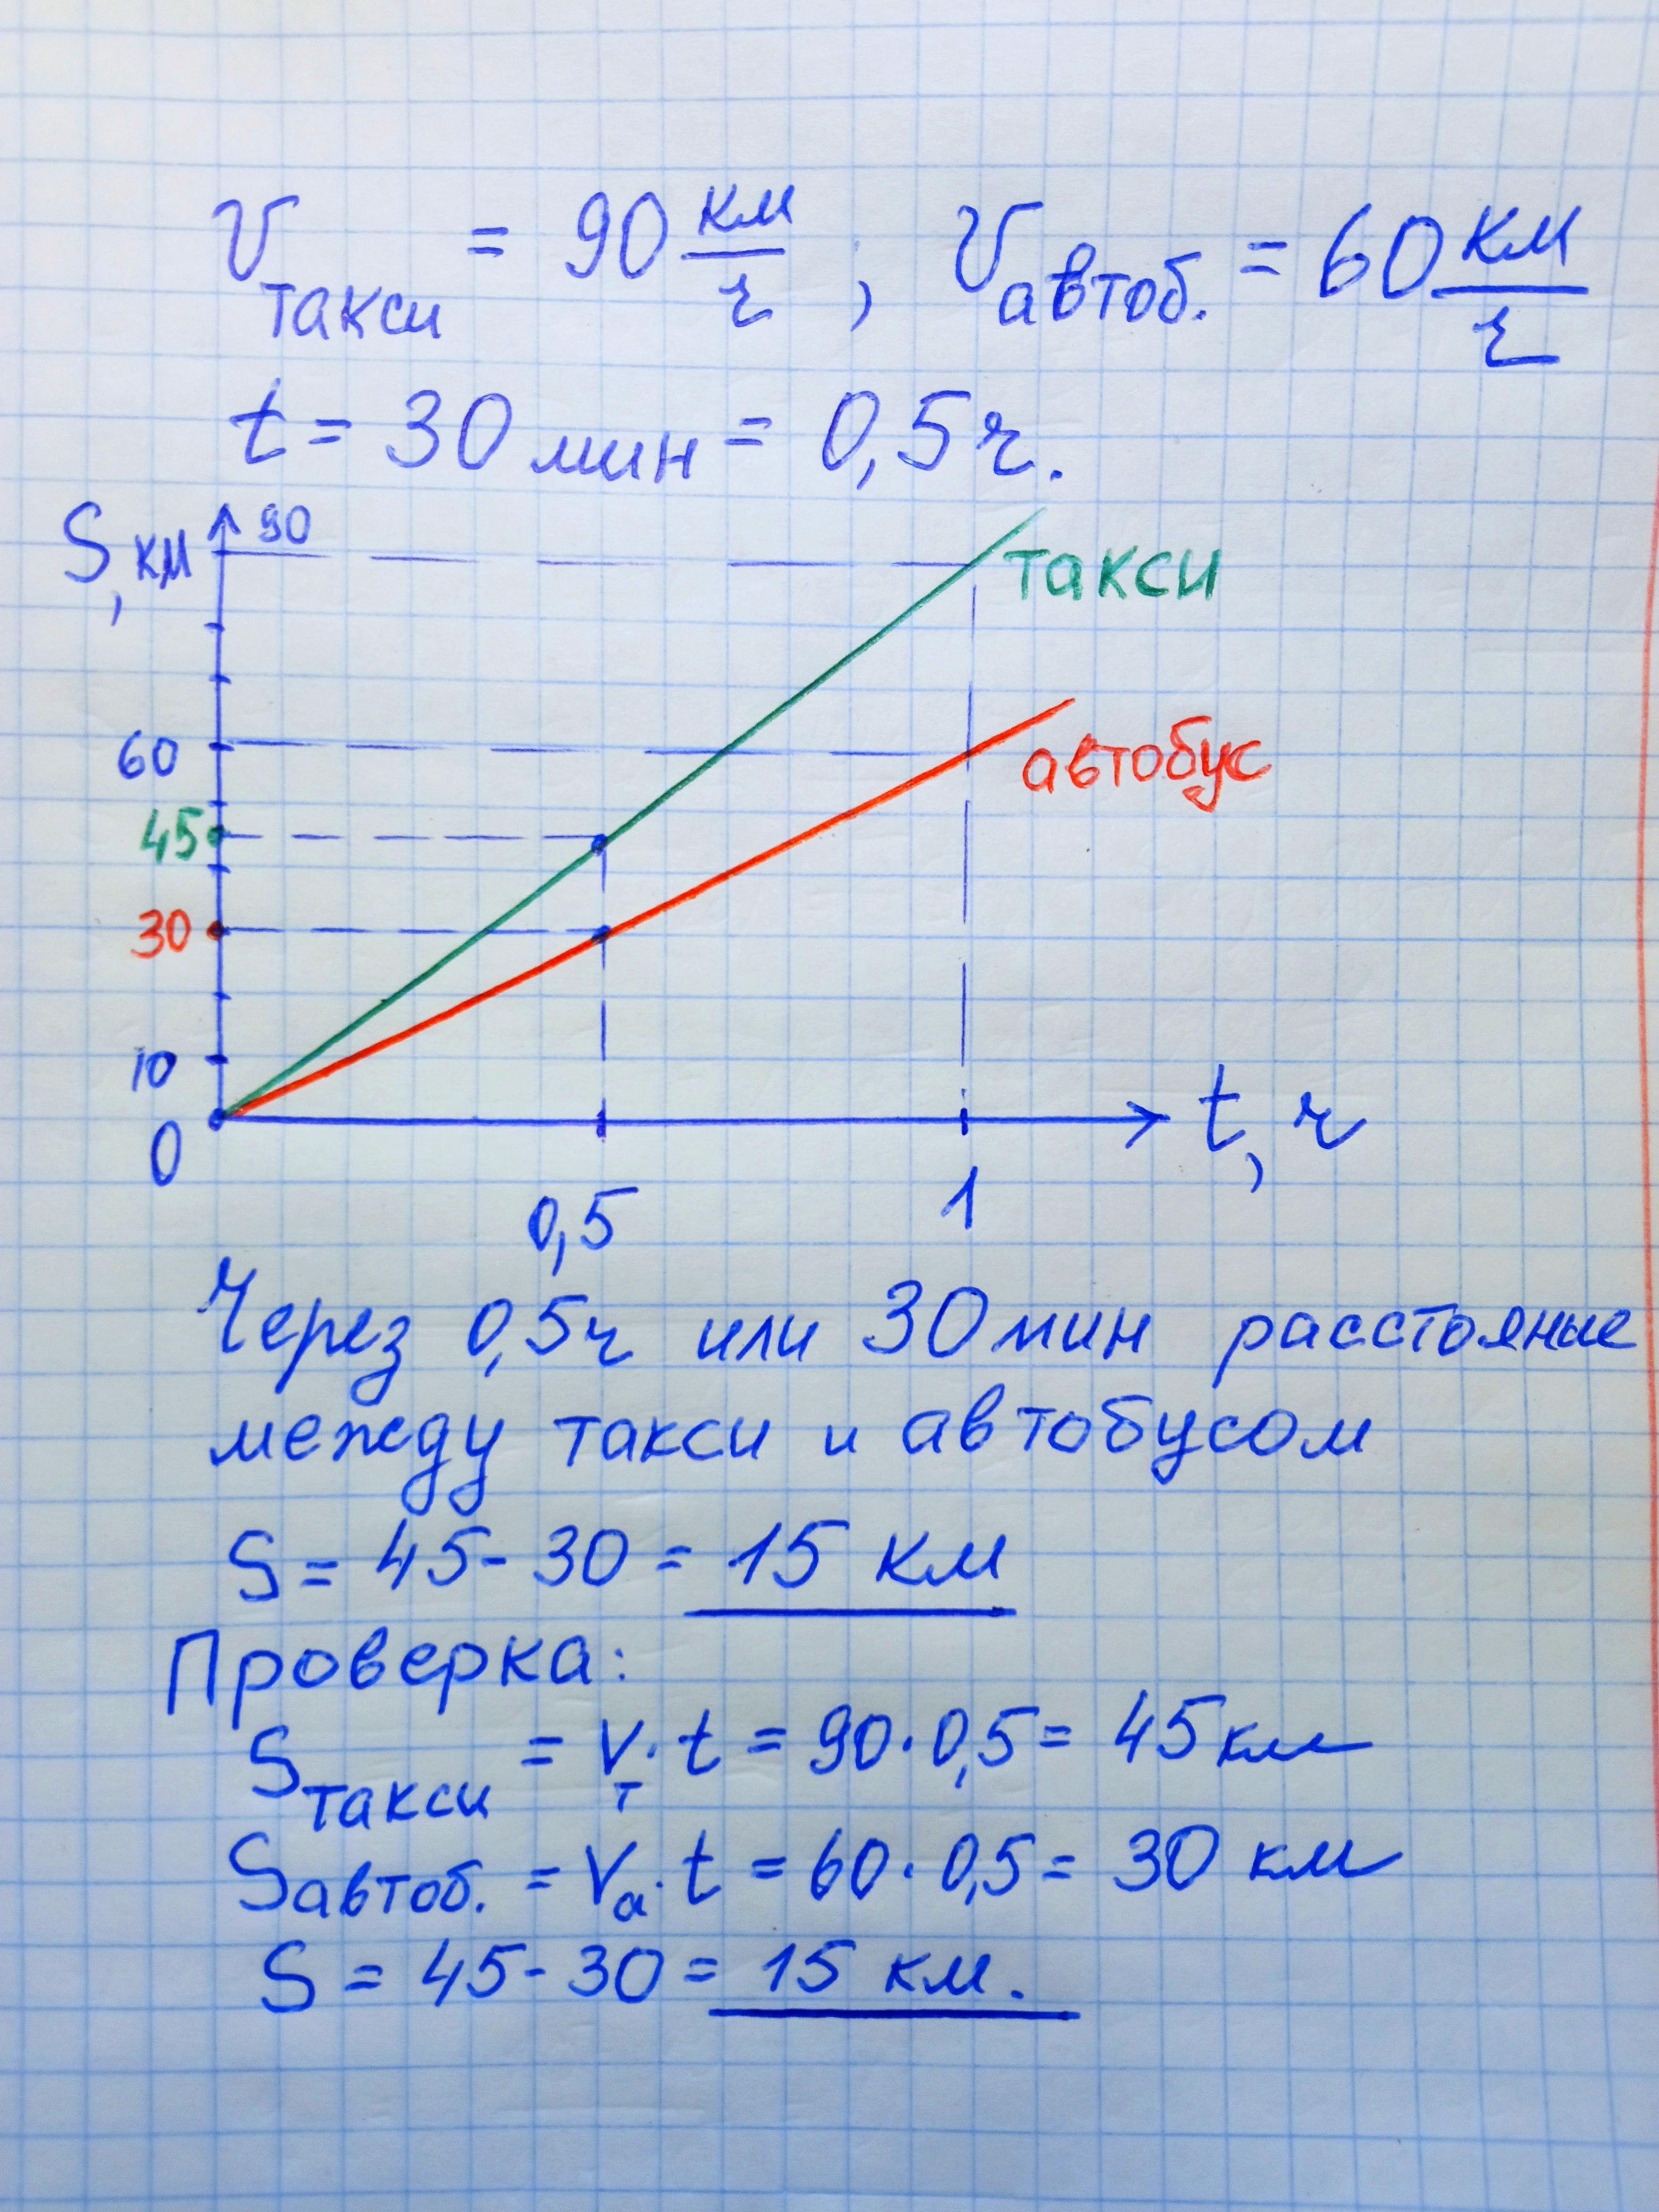 Vтакси = 90 км/ч ; Vавтоб. = 60 км/ч
t = 30 мин = 0,5 ч.
S, км 90
такси
60
автобус
45
30
10
0
t, ч
0,5 1
Через 0,5 ч или 30 мин расстояние
между такси и автобусом
S = 45 - 30 = 15 км
Проверка:
Sтакси = Vт · t = 90 · 0,5 = 45 км
Sавтоб. = Vа · t = 60 · 0,5 = 30 км
S = 45 - 30 = 15 км.